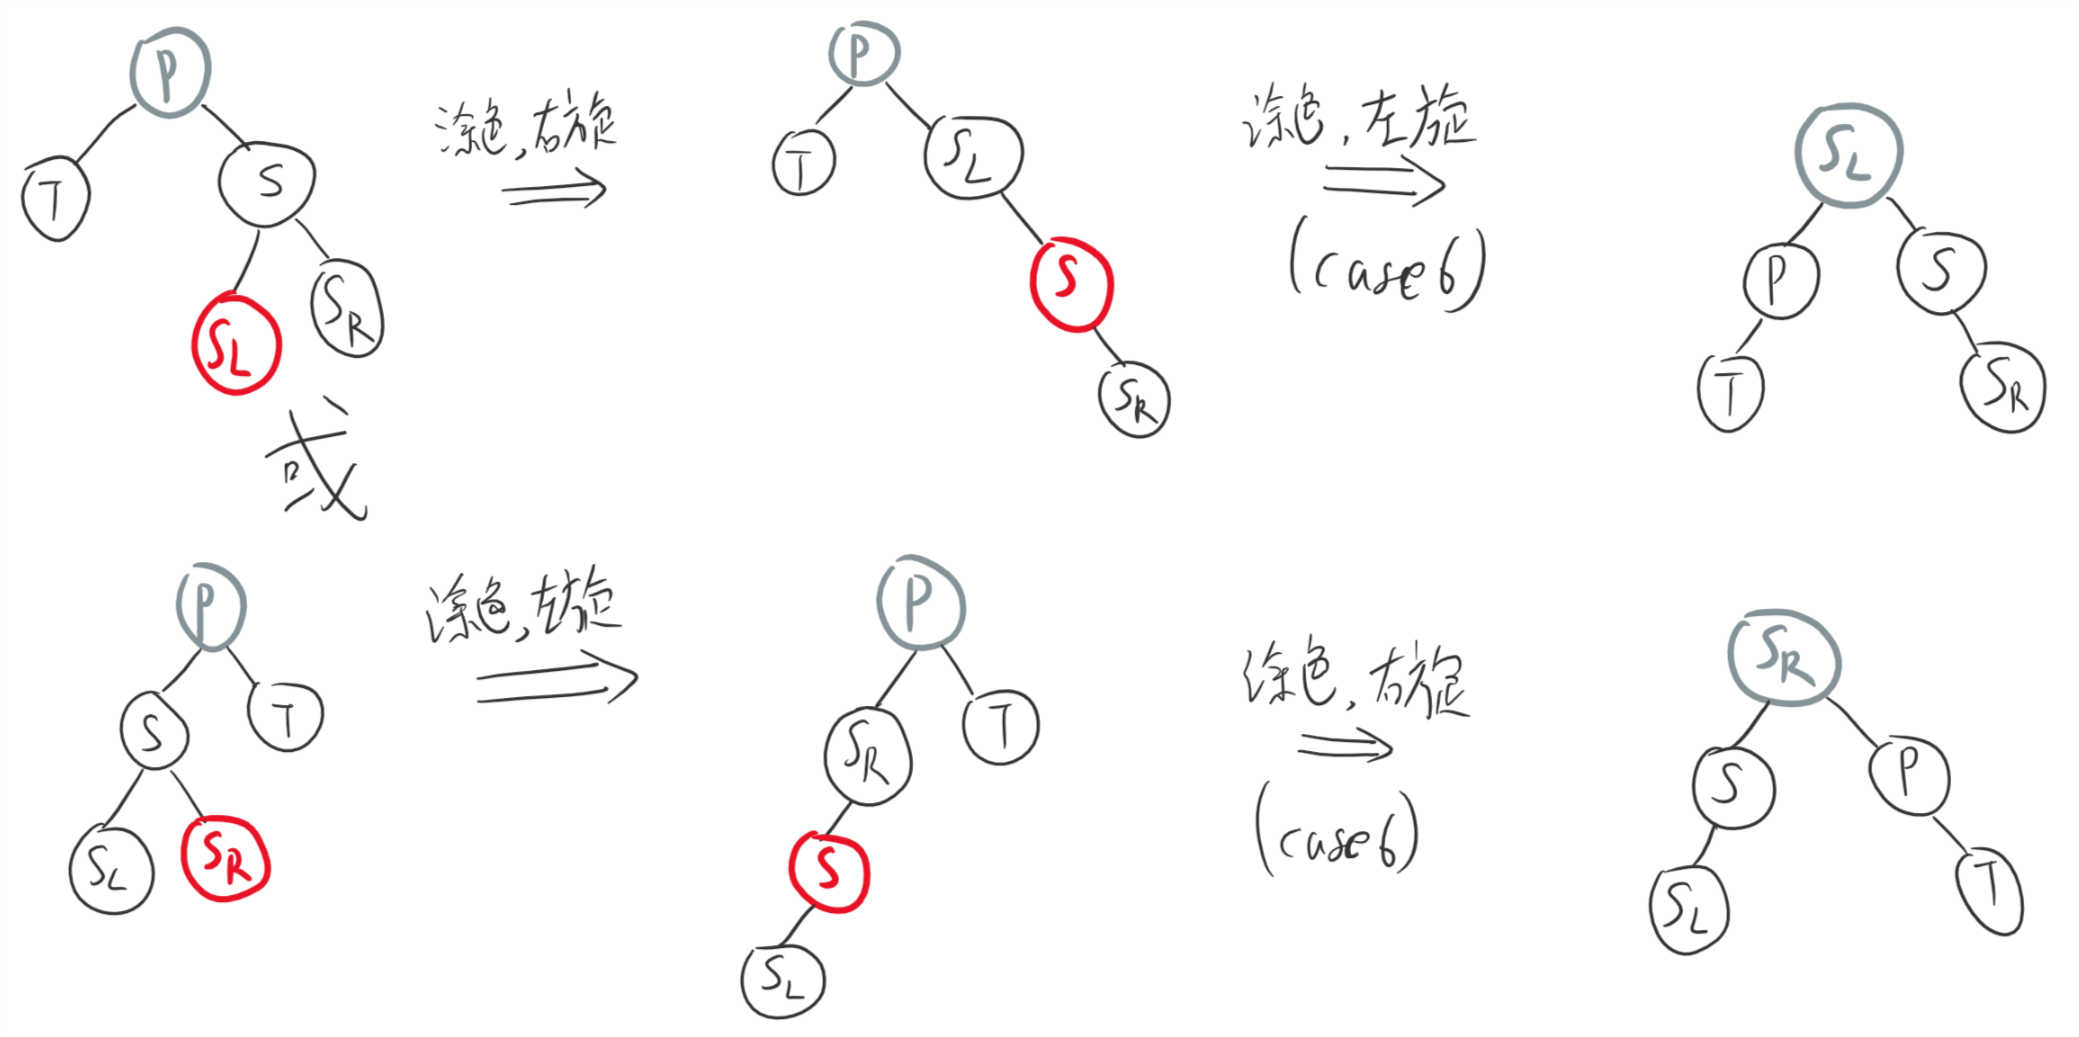 P
T
S
S_L
S_R
涂色,右旋
P
T
S_L
S
S_R
涂色,左旋
(case6)
S_L
P
S
T
S_R
或
P
S
T
S_L
S_R
涂色,左旋
P
S_R
T
S
S_L
涂色,右旋
(case6)
S_R
S
P
S_L
T